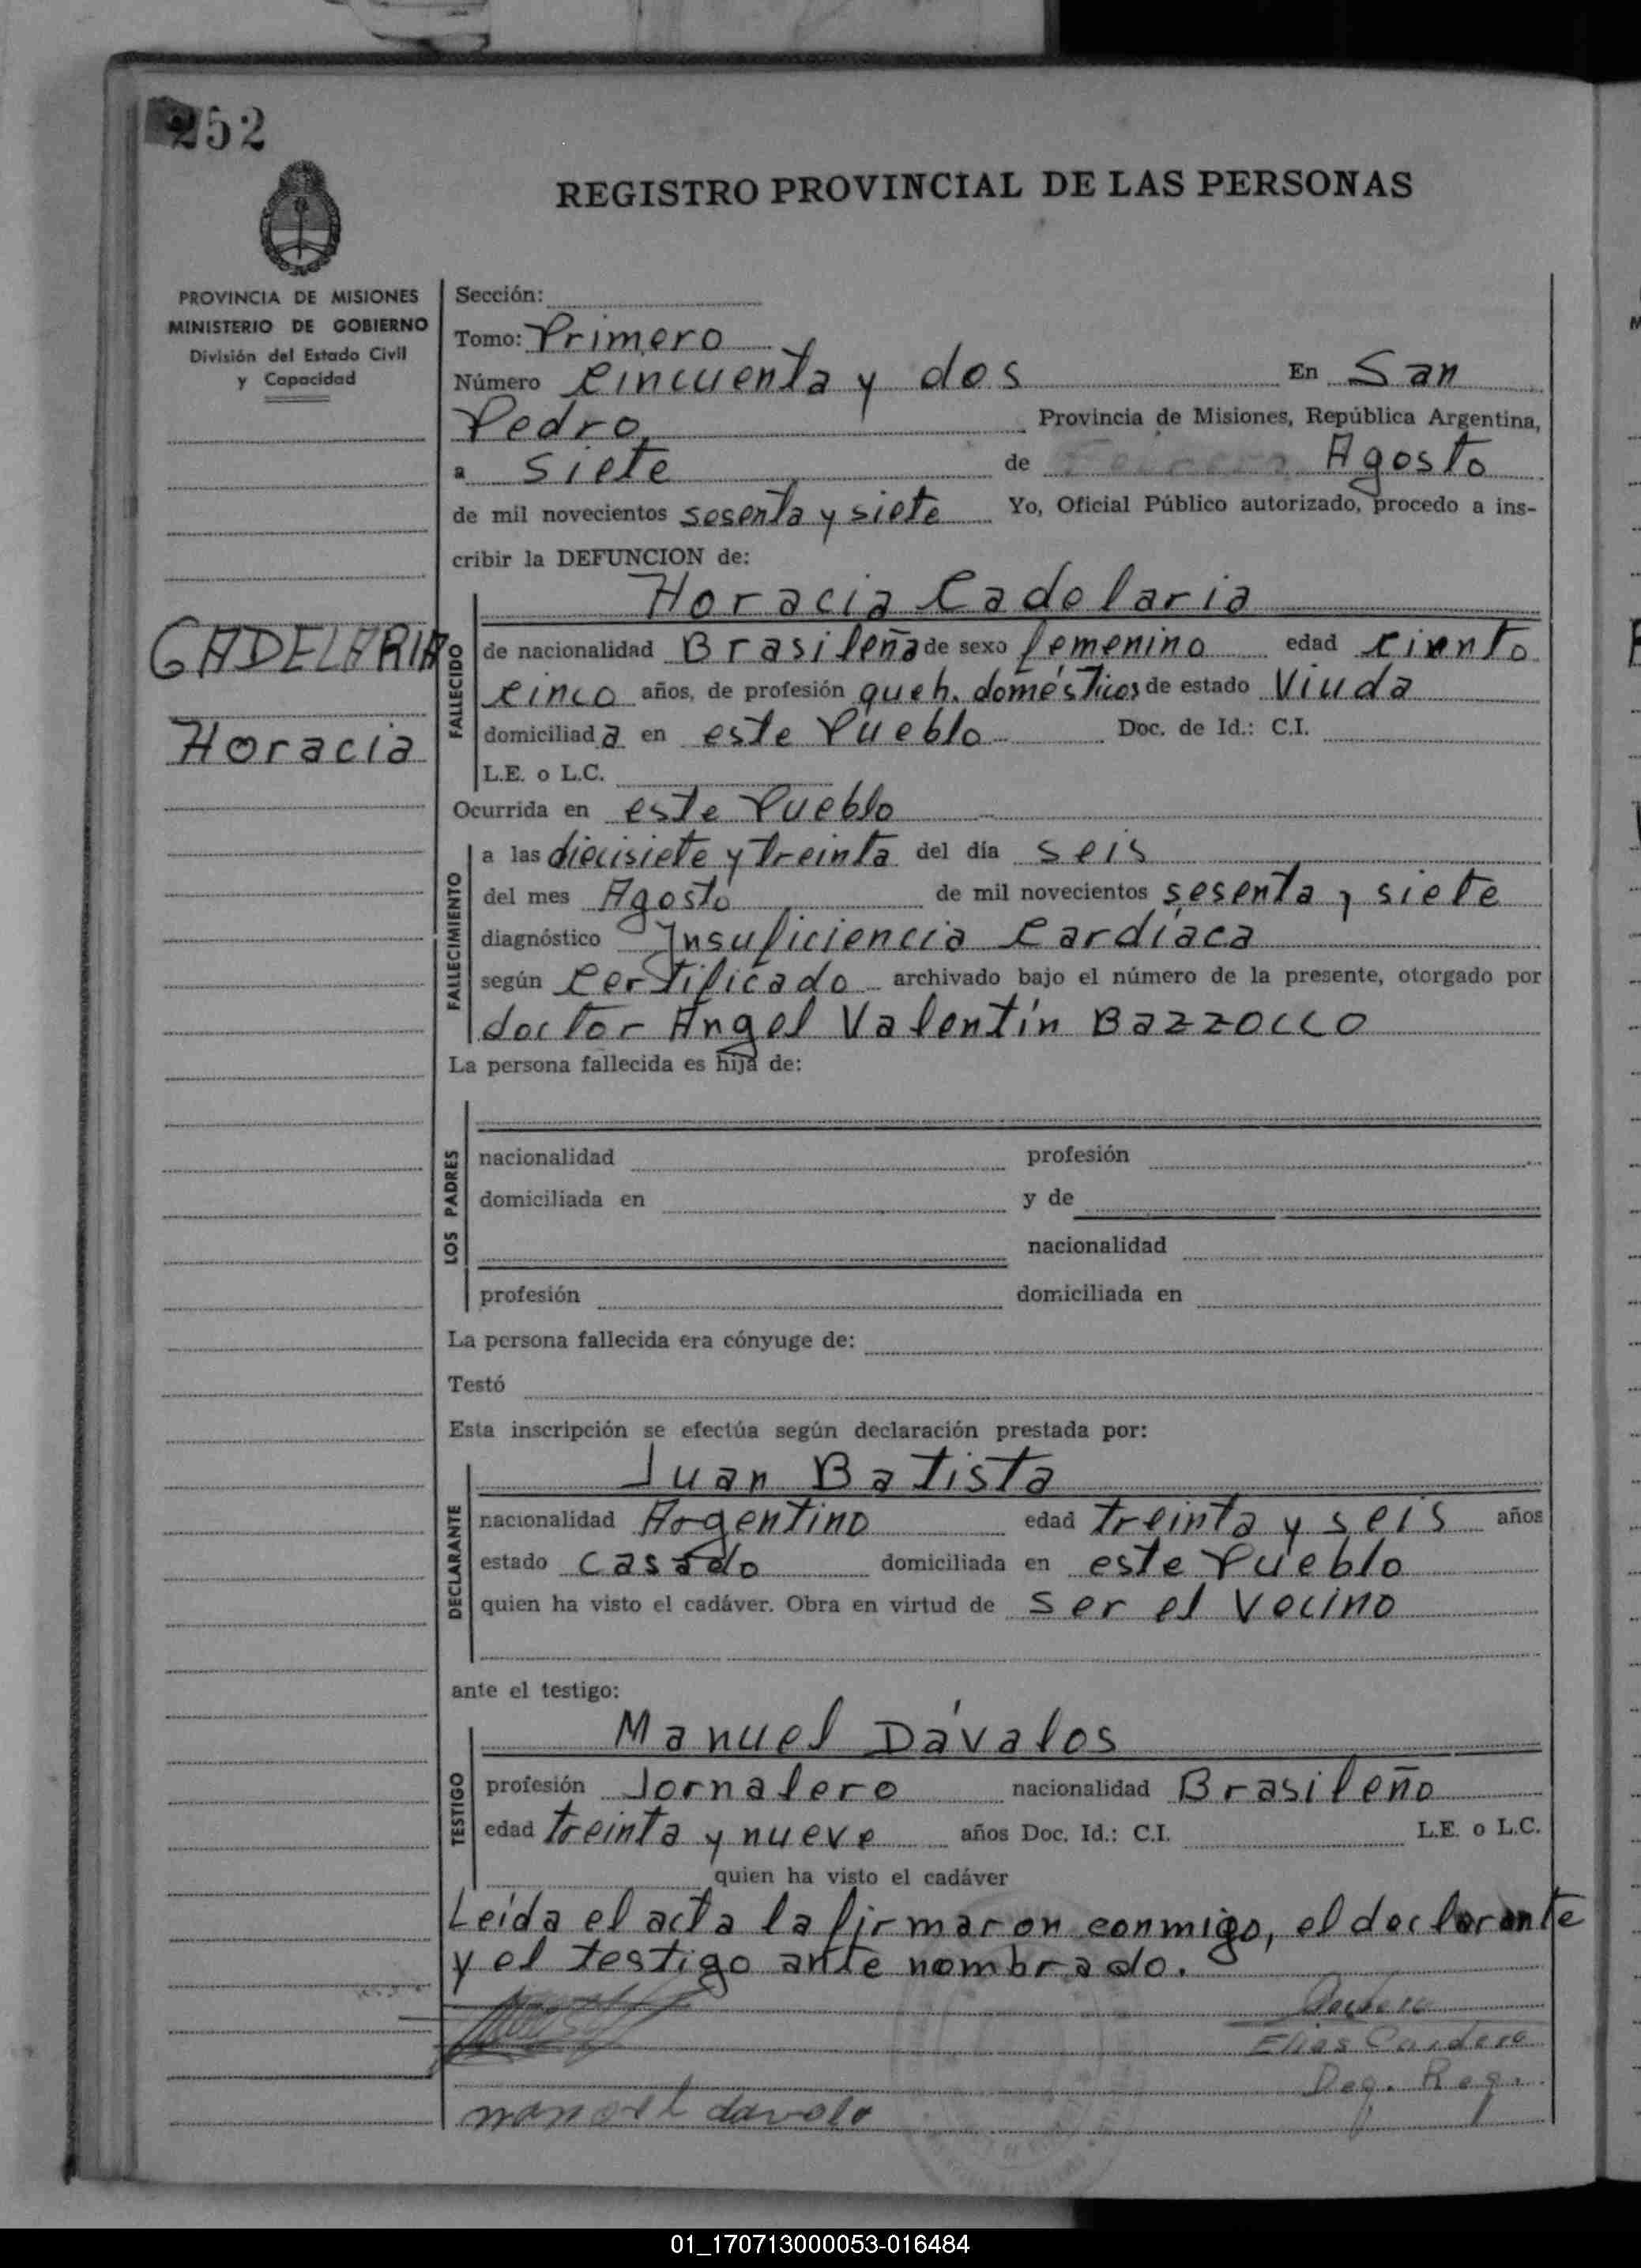 252
REGISTRO PROVINCIAL DE LAS PERSONAS
PROVINCIA DE MISIONES
MINISTERIO DE GOBIERNO
División del Estado Civil
y Capacidad
CADELARIA
Horacia
Sección:
Tomo: Primero
Número Cincuenta y dos En San
Pedro, Provincia de Misiones, República Argentina,
a siete de Agosto
de mil novecientos sesenta y siete Yo, Oficial Público autorizado, procedo a ins-
cribir la DEFUNCION de:
Horacia Cadelaria
FALLECIDO
de nacionalidad Brasileña de sexo femenino edad ciento
cinco años, de profesión queh. domésticos de estado Viuda
domiciliada en este Pueblo Doc. de Id.: C.I.
L.E. o L.C.
Ocurrida en este Pueblo
FALLECIMIENTO
a las diecisiete y treinta del día seis
del mes Agosto de mil novecientos sesenta y siete
diagnóstico Insuficiencia Cardíaca
según Certificado archivado bajo el número de la presente, otorgado por
doctor Angel Valentín Bazzocco
La persona fallecida es hija de:
LOS PADRES
nacionalidad profesión
domiciliada en y de
nacionalidad
profesión domiciliada en
La persona fallecida era cónyuge de:
Testó
Esta inscripción se efectúa según declaración prestada por:
Juan Batista
DECLARANTE
nacionalidad Argentino edad treinta y seis años
estado casado domiciliada en este Pueblo
quien ha visto el cadáver. Obra en virtud de ser el vecino
ante el testigo:
Manuel Dávalos
TESTIGO
profesión Jornalero nacionalidad Brasileño
edad treinta y nueve años Doc. Id.: C.I. L.E. o L.C.
quien ha visto el cadáver
Leída el acta la firmaron conmigo, el declarante
y el testigo ante nombrado.
Elias
Deg. Reg.
manoel davolo
01_170713000053-016484